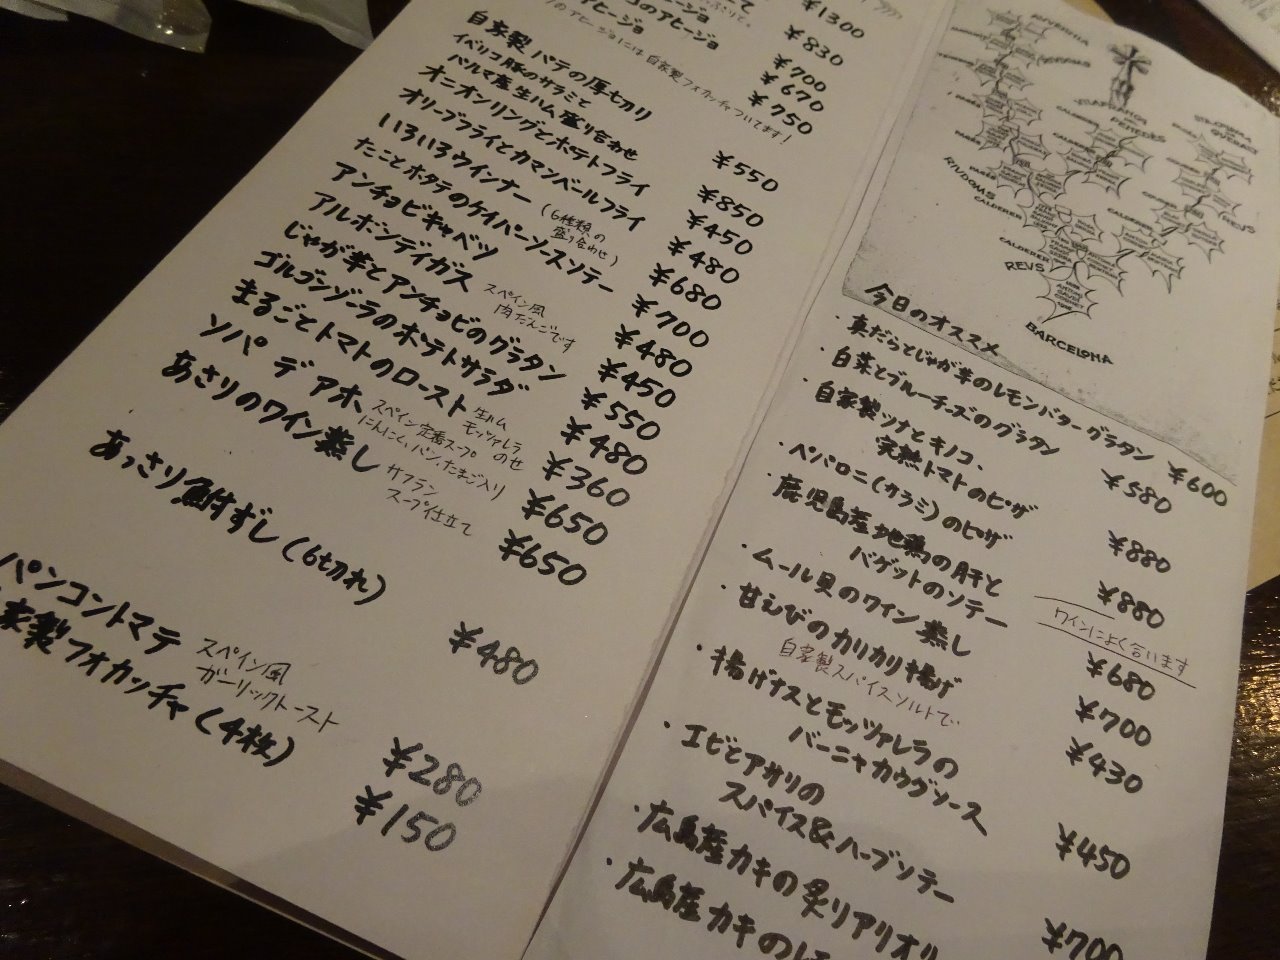 ¥1300
のアヒージョ ¥830
アヒージョ ¥700
¥670
¥750
アヒージョには自家製フォカッチャついてます!
自家製パテの厚切り ¥550
イベリコ豚のサラミと
パルマ産生ハム盛り合わせ ¥850
オニオンリングとポテトフライ ¥450
オリーブフライとカマンベールフライ ¥480
いろいろウインナー (6種類の盛り合わせ) ¥680
たことホタテのケイパーソースソテー ¥700
アンチョビキャベツ ¥480
アルボンディガス スペイン風肉だんごです ¥450
じゃが芋とアンチョビのグラタン ¥550
ゴルゴンゾーラのポテトサラダ ¥480
まるごとトマトのロースト 生ハムモッツァレラのせ ¥360
ソパ デ アホ、 スペイン定番スープ にんにく、パン、たまご入り ¥650
あさりのワイン蒸し サフランスープ仕立て ¥650
あっさり鮒ずし (6切れ) ¥480
パンコントマテ スペイン風ガーリックトースト ¥280
家製フォカッチャ (4枚) ¥150
VILAFRANCA
PENEDES
RIUDOMS
CALDERER
CALDERER
REUS
REUS
BARCELONA
今日のオススメ
・真だらとじゃが芋のレモンバターグラタン ¥600
・白菜とブルーチーズのグラタン ¥580
・自家製ツナとキノコ、
完熟トマトのピザ ¥880
・ペパロニ(サラミ)のピザ ¥880
・鹿児島産地鶏の肝と
バゲットのソテー ワインによく合います ¥680
・ムール貝のワイン蒸し ¥700
・甘えびのカリカリ揚げ ¥430
自家製スパイスソルトで
・揚げナスとモッツァレラの
バーニャカウダソース ¥450
・エビとアサリの
スパイス&ハーブソテー ¥700
・広島産カキの炙りアリオリ
・広島産カキのレモ